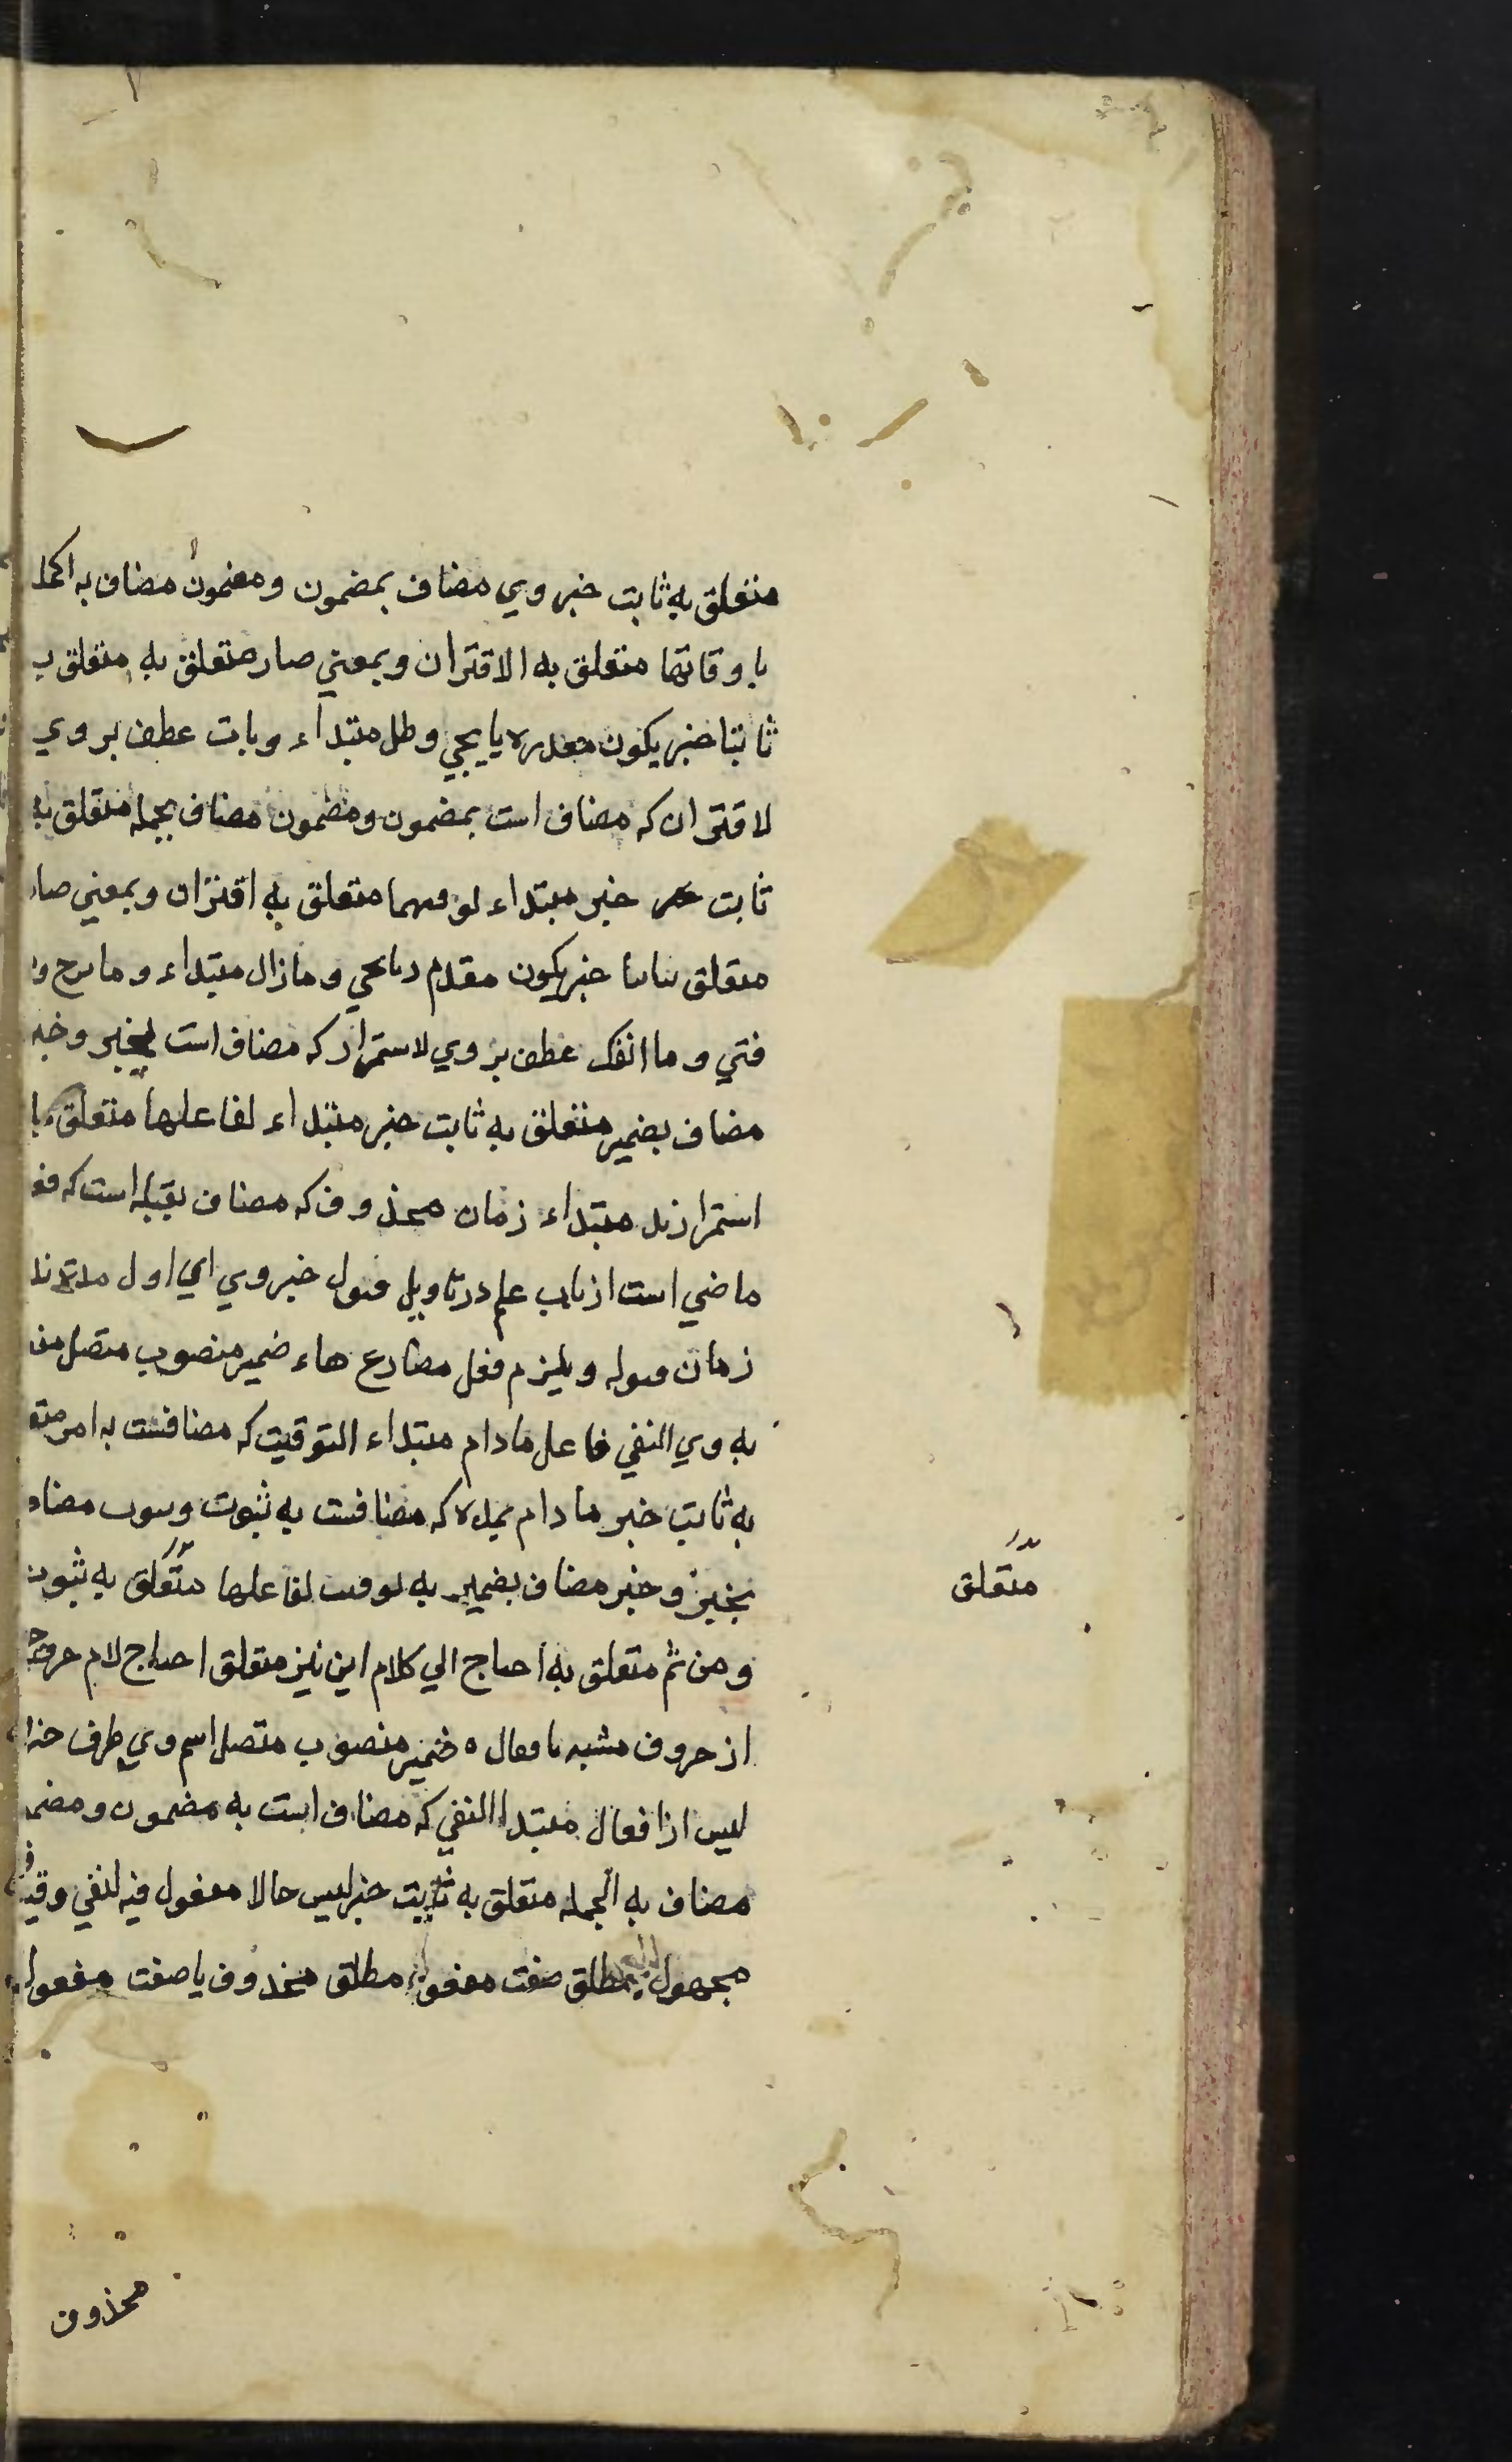 متعلق به ثابت خبر وي مضاف بمضمون ومضمون مضاف به الجملة
باوقاتها متعلق به الاقتران وبمعني صار متعلق به متعلق ب
ثابتا خبر يكون مقدره يا يجي وظل مبتداء وبات عطف بر وي
لاقتران كه مضاف است بمضمون ومضمون مضاف بجمله متعلق به
ثابت خبر مبتداء لوقتهما متعلق به اقتران وبمعني صار
متعلق ثابتا خبر يكون مقدم ديا يجي وما زال مبتداء وما برح وما
فتي وما انفك عطف بر وي لاستمرار كه مضاف است بخبر وخبر
مضاف بضمير متعلق به ثابت خبر مبتداء لفاعلها متعلق با
استمرار مبتداء زمان محذوف كه مضاف بقبله است كه فعل
ماضي است از باب علم در تاويل قبول خبر وي اي اول
زمان قبوله ويلزم فعل مضارع هاء ضمير منصوب متصل
به وي النفي فاعل مادام مبتداء التوقيت كه مضافست به امر متعلق
به ثابت خبر مادام بمدة كه مضافست به ثبوت وثبوت مضاف
بخبر وخبر مضاف بضمير به توقيت لفاعلها متعلق به ثبوت
ومن ثم متعلق به احتاج الي كلام اين نيز متعلق احتاج لام حرف جر
از حروف مشبه بافعال ه ضمير منصوب متصل اسم وي ظرف خبر
ليس از افعال مبتدا النفي كه مضاف است به مضمون ومضمون
مضاف به الجمله متعلق به ثابت خبر ليس حالا مفعول فيه لنفي وقيل فعل
مجهول مطلق صفت مفعول مطلق محذوف يا صفت مفعول
متعلق
محذوف